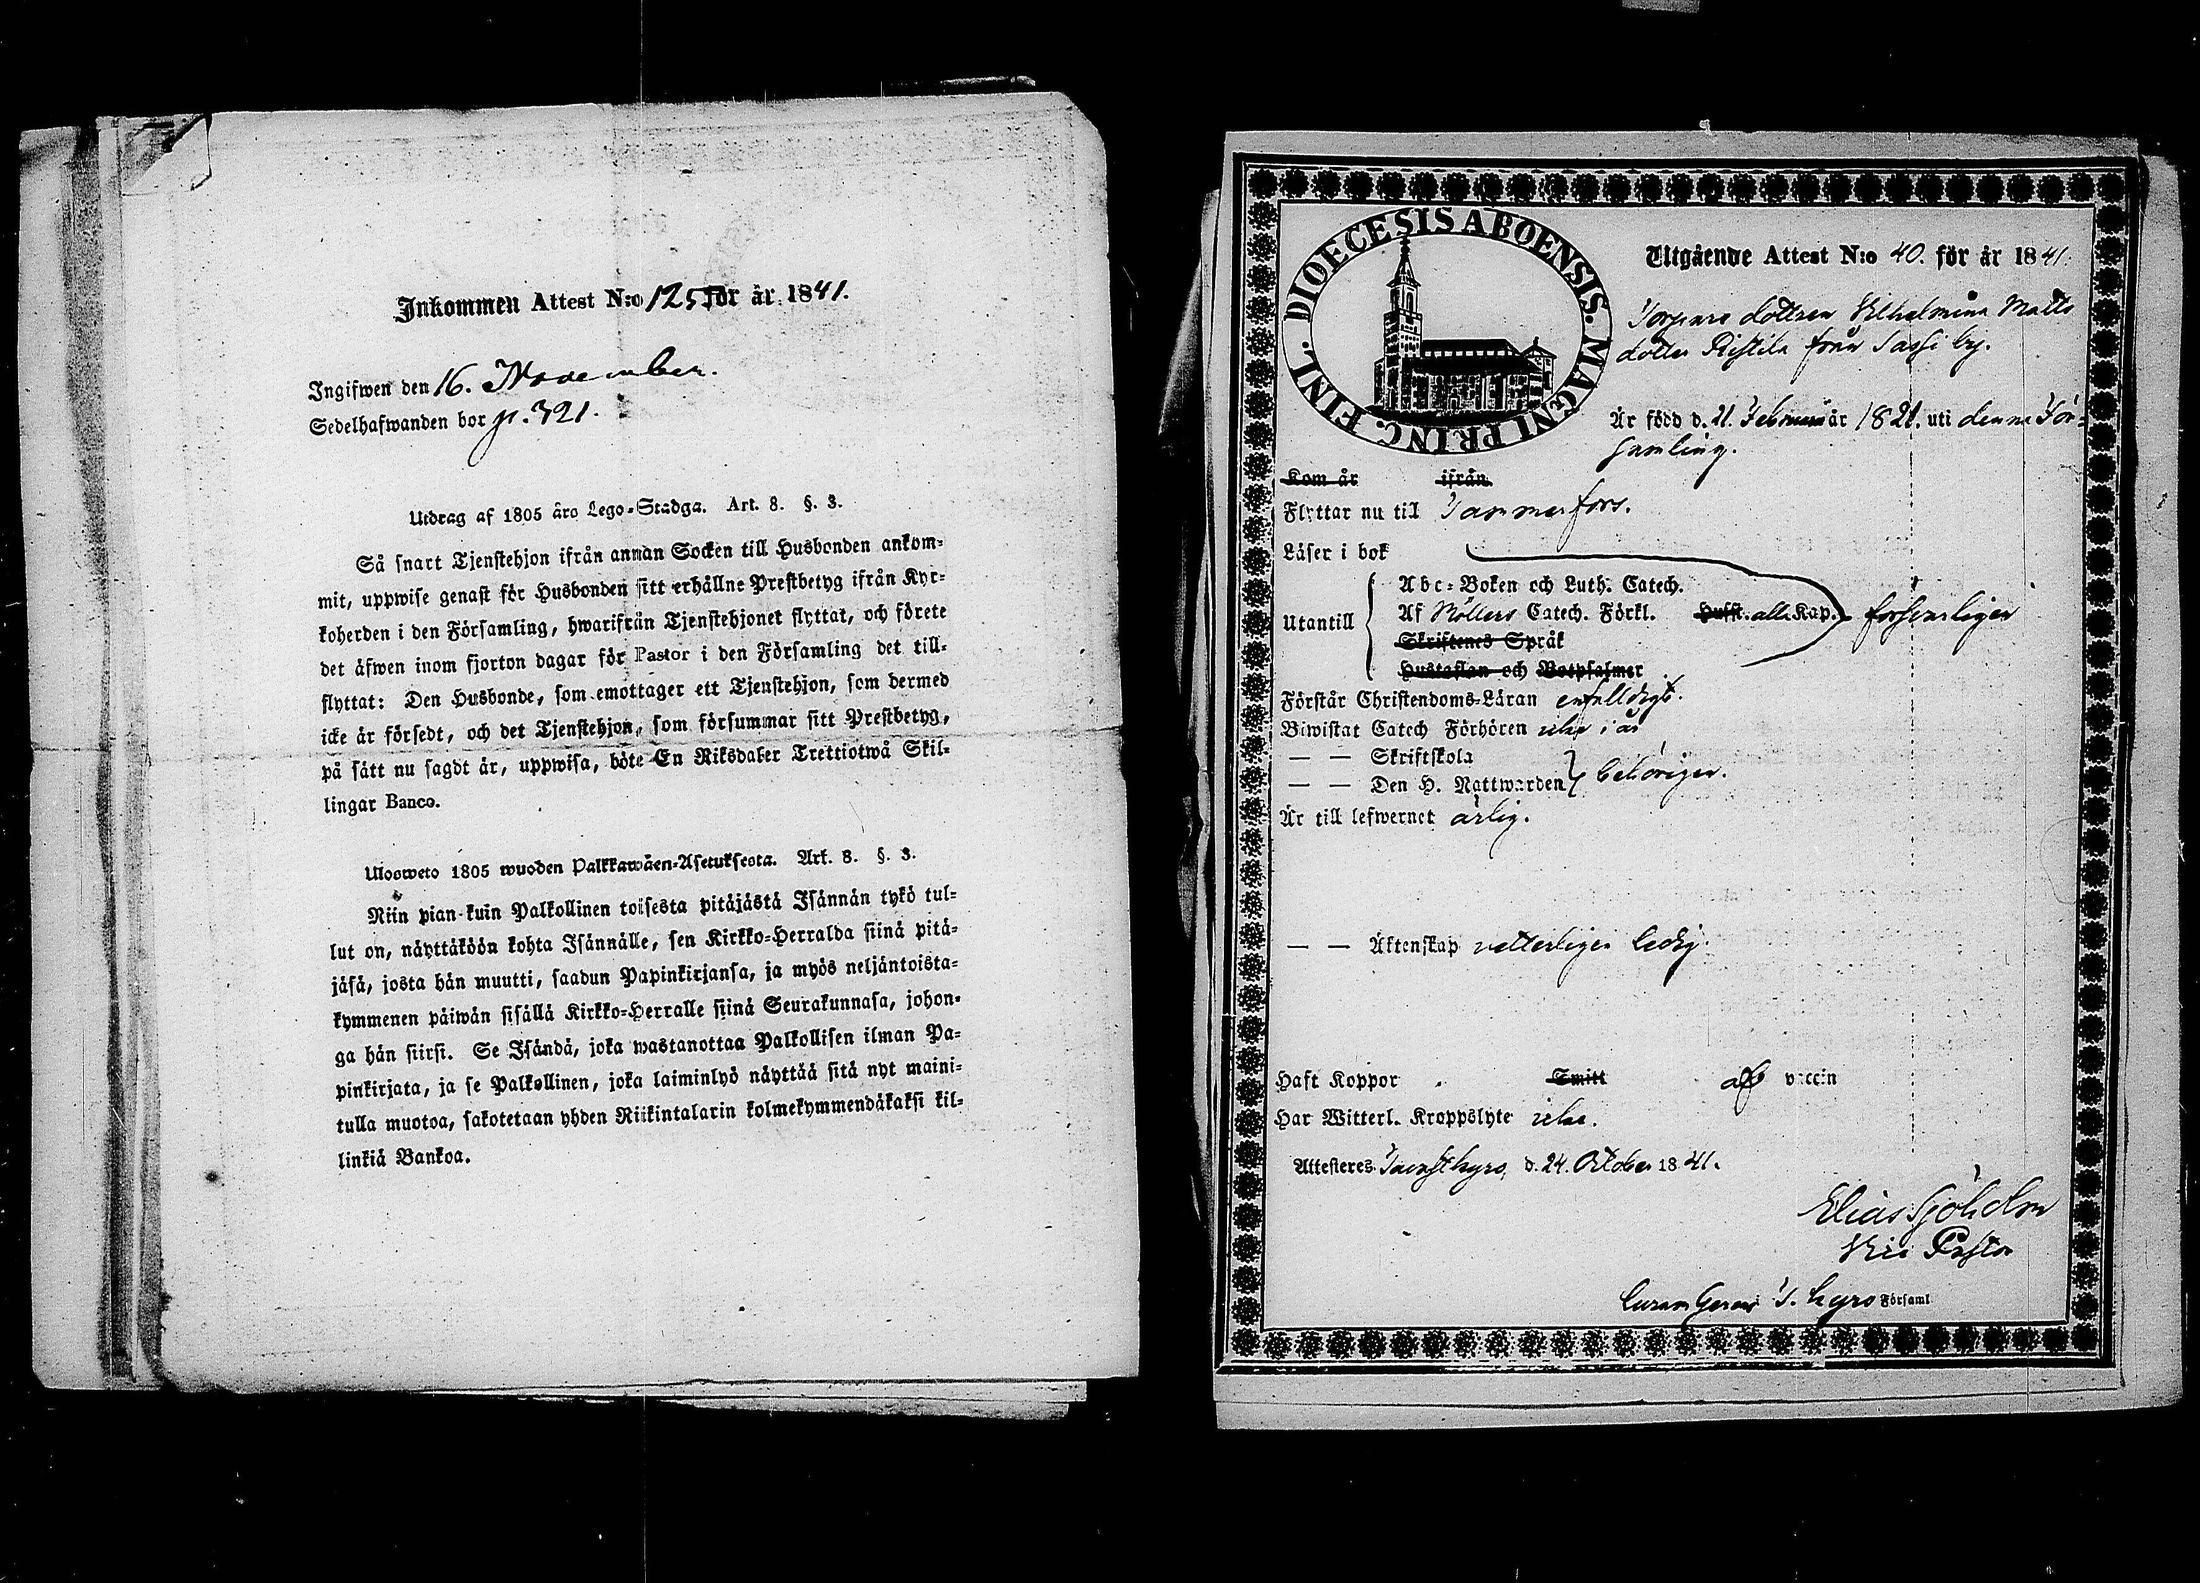 Inkommen Attest N:o 125 för år 1841.
Ingifwen den 16. November.
Sedelhafwanden bor p. 321.
Utdrag af 1805 års Lego-Stadga. Art. 8. §. 3.
Så snart Tjenstehjon ifrån annan Socken till Husbonden ankom-
mit, uppwise genast för Husbonden sitt erhållne Prestbetyg ifrån Kyr-
koherden i den Församling, hwarifrån Tjenstehjonet flyttat, och förete
det äfwen inom fjorton dagar för Pastor i den Församling det till-
flyttat: Den Husbonde, som emottager ett Tjenstehjon, som dermed
icke är försedt, och det Tjenstehjon, som försummar sitt Prestbetyg,
på sätt nu sagdt är, uppwisa, böte En Riksdaler Trettiotwå Skil-
lingar Banco.
Ulosweto 1805 wuoden Palkkawäen-Asetuksesta. Art. 8. §. 3.
Niin pian kuin Palkollinen toisesta pitäjästä Isännän tykö tul-
lut on, näyttäköön kohta Isännälle, sen Kirkko-Herralda siinä pitä-
jäsä, josta hän muutti, saadun Papinkirjansa, ja myös neljäntoista-
kymmenen päiwän sisällä Kirkko-Herralle siinä Seurakunnasa, johon-
ga hän siirsi. Se Isändä, joka wastanottaa Palkollisen ilman Pa-
pinkirjata, ja se Palkollinen, joka laiminlyö näyttää sitä nyt maini-
tulla muotoa, sakotetaan yhden Riikintalarin kolmekymmendäkaksi kil-
linkiä Bankoa.
DIOECESIS ABOENSIS. MAGNI PRINC. FINL.
Utgående Attest N:o 40. för år 1841.
Torpare dottren Vilhelmina Matts
dotter Ristila från Sassi by.
Är född d. 21. Februari år 1821. uti denna För-
samling.
Kom år ifrån
Flyttar nu till Tammerfors.
Läser i bok
Abc-Boken och Luth. Catech.
Utantill Af Möllers Catech. Förkl. Husst. alla Kap. försvarligen
Skriftenes Språk
Hustaflan och Botpsalmer
Förstår Christendoms-Läran enfalldigt.
Biwistat Catech Förhören icke i år
— — Skriftskola
— — Den H. Nattwarden behörigen.
Är till lefwernet ärlig.
— — Äktenskap vetterligen ledig.
Haft Koppor Smitt af vaccin
Har Witterl. Kroppslyte icke.
Attesteres Tavastkyro, d. 24. October 1841.
Elias Sjöholm
Vice Pastor
Curam Gerens i T. kyro Församl